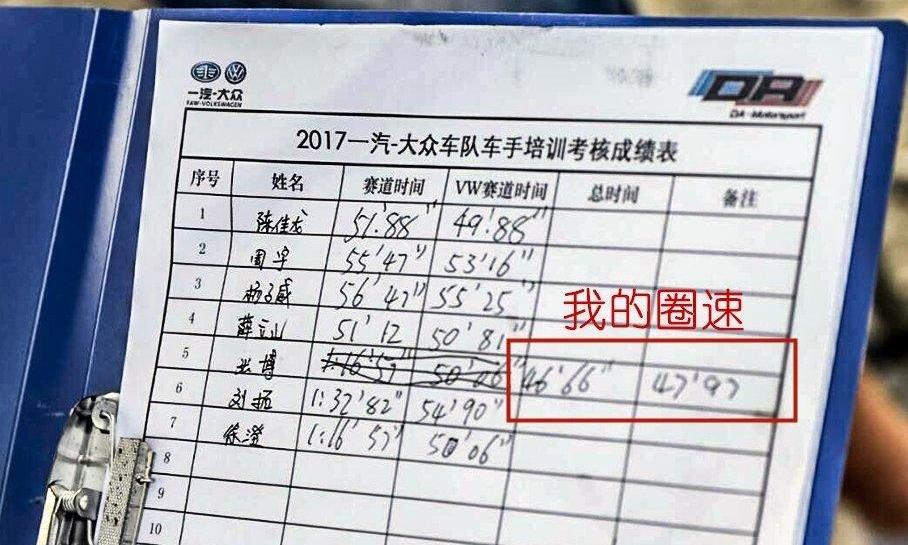 一汽-大众
FAW-VOLKSWAGEN
DA
DA-Motorsport
2017一汽-大众车队车手培训考核成绩表
序号 姓名 赛道时间 VW赛道时间 总时间 备注
1 陈佳龙 51'88" 49'88"
2 周宇 55'47" 53'16"
3 杨子威 56'47" 55'25"
我的圈速
4 薛立山 51'12 50'81"
5 兴博 1:16'57" 50'06" 46'66" 47'97
6 刘扬 1:32'82" 54'90"
7 徐滢 1:16'57" 50'06"
8
9
10